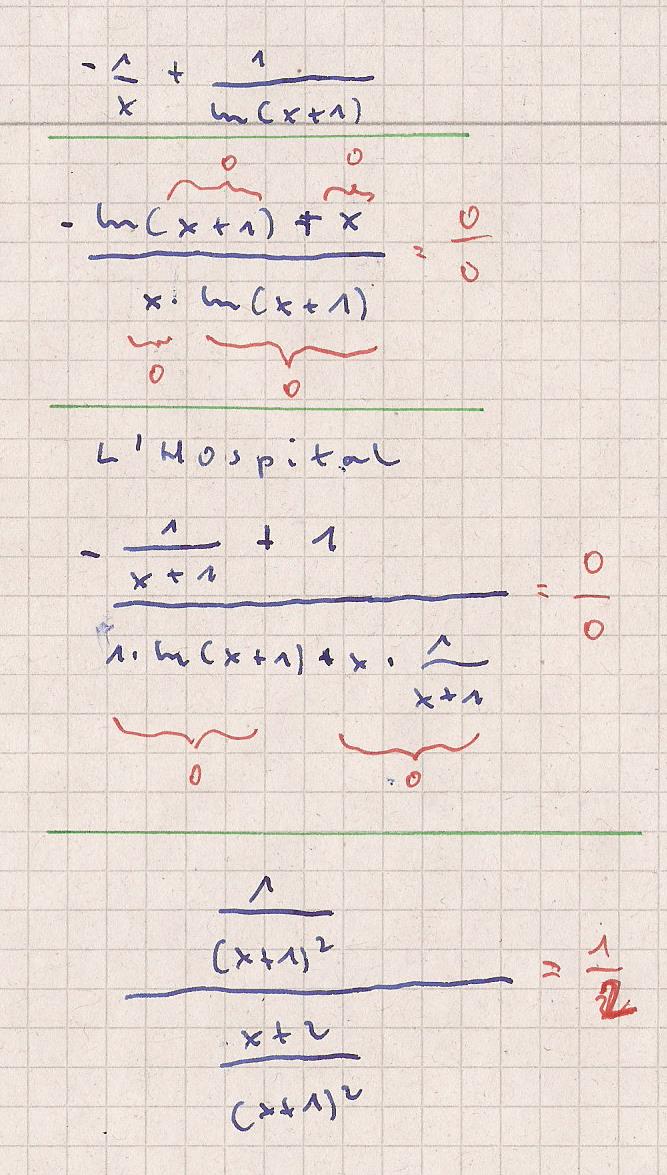 - 1/x + 1/ln(x+1)
0 0
- ln(x+1) + x / x · ln(x+1) = 0/0
0 0
L'Hospital
- 1/x+1 + 1 / 1 · ln(x+1) + x · 1/x+1 = 0/0
0 0
1/(x+1)² / x+2/(x+1)² = 1/2